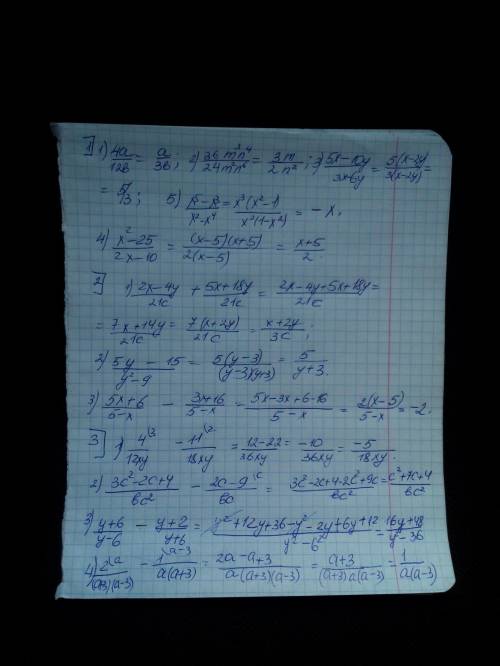 1] 1) 4a/12b = a/3b; 2) 36m³n⁴/24m²n⁶ = 3m/2n²; 3) 5x-10y/3x-6y = 5(x-2y)/3(x-2y) =
= 5/3; 5) x⁵-x³/x²-x⁴ = x³(x²-1)/x²(1-x²) = -x.
4) x²-25/2x-10 = (x-5)(x+5)/2(x-5) = x+5/2.
2] 1) 2x-4y/21c + 5x+18y/21c = 2x-4y+5x+18y/21c =
= 7x+14y/21c = 7(x+2y)/21c = x+2y/3c;
2) 5y-15/y²-9 = 5(y-3)/(y-3)(y+3) = 5/y+3.
3) 5x+6/5-x - 3x+16/5-x = 5x-3x+6-16/5-x = 2(x-5)/5-x = -2.
3] 1) 4\3/12xy - 11\2/18xy = 12-22/36xy = -10/36xy = -5/18xy.
2) 3c²-2c+4/bc² - 2c-9\c/bc = 3c²-2c+4-2c²+9c/bc² = c²+7c+4/bc²
3) y+6/y-6 - y+2/y+6 = y²+12y+36-y²-2y+6y+12/y²-6² = 16y+48/y²-36
4) 2\a/(a+3)(a-3) - 1\a-3/a(a+3) = 2a-a+3/a(a+3)(a-3) = a+3/(a+3)a(a-3) = 1/a(a-3)